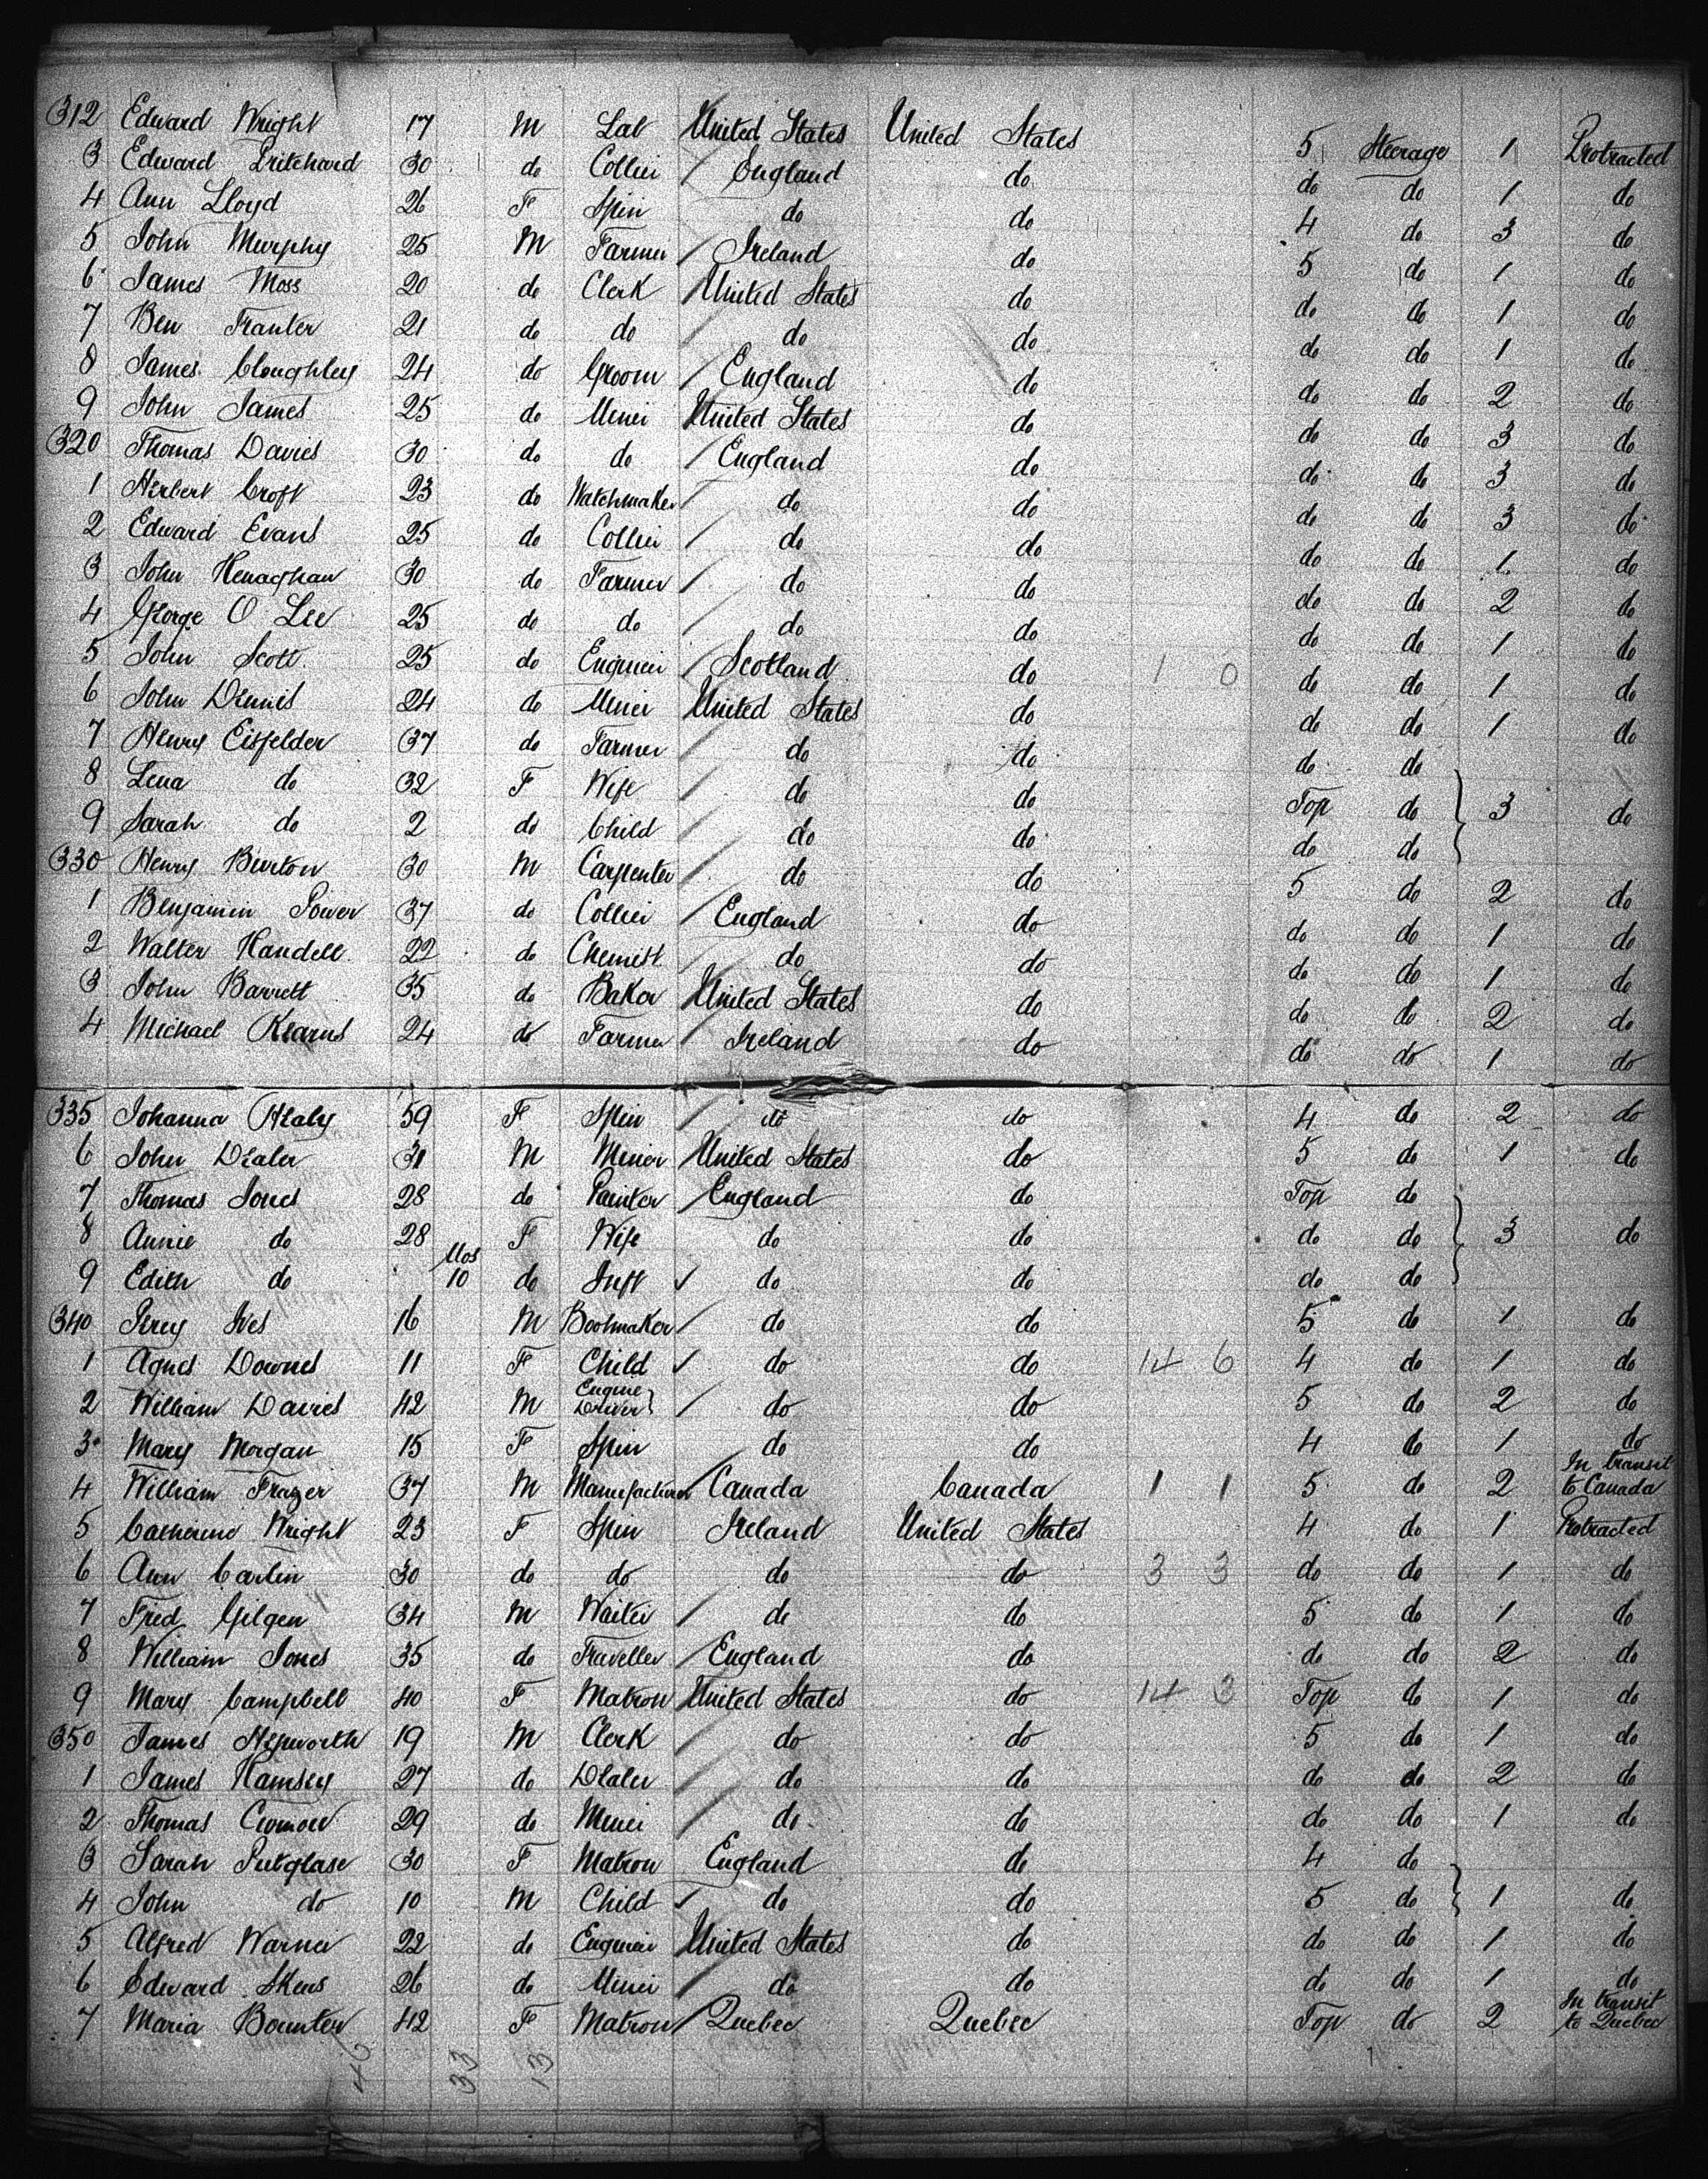 312 Edward Wright 17 M Lab United States United States 5 Steerage 1 Protracted
3 Edward Pritchard 30 do Collier / England do do do 1 do
4 Ann Lloyd 26 F Spin do do 4 do 3 do
5 John Murphy 25 M Farmer / Ireland do 5 do 1 do
6 James Moss 20 do Clerk / United States do do do 1 do
7 Ben Tranter 21 do do / do do do do 1 do
8 James Cloughley 24 do Groom / England do do do 2 do
9 John James 25 do Miner United States do do do 3 do
320 Thomas Davies 30 do do / England do do do 3 do
1 Herbert Croft 23 do Watchmaker / do do do do 3 do
2 Edward Evans 25 do Collier / do do do do 1 do
3 John Henaghan 30 do Farmer / do do do do 2 do
4 George O Lee 25 do do / do do do do 1 do
5 John Scott 25 do Engineer / Scotland do 1 0 do do 1 do
6 John Dennis 24 do Miner United States do do do 1 do
7 Henry Eisfelder 37 do Farmer / do do do do
8 Lena do 32 F Wife / do do Top do } 3 do
9 Sarah do 2 do Child / do do do do
330 Henry Burton 30 M Carpenter / do do 5 do 2 do
1 Benjamin Power 37 do Collier / England do do do 1 do
2 Walter Handell 22 do Chemist / do do do do 1 do
3 John Barrett 35 do Baker United States do do do 2 do
4 Michael Kearns 24 do Farmer / Ireland do do do 1 do
335 Johanna Healy 59 F Spin / do do 4 do 2 do
6 John Dealer 31 M Miner United States do 5 do 1 do
7 Thomas Jones 28 do Painter / England do Top do
8 Annie do 28 F Wife do do do do } 3 do
9 Edith do Mos 10 do Inft ✓ do do do do
340 Percy Ives 16 M Bootmaker / do do 5 do 1 do
1 Agnes Downes 11 F Child ✓ do do 14 6 4 do 1 do
2 William Davies 42 M Engine Driver } / do do 5 do 2 do
3 Mary Morgan 15 F Spin do do 4 do 1 do
4 William Frazer 37 M Manufacturer Canada Canada 1 1 5 do 2 In transit to Canada
5 Catherine Wright 23 F Spin Ireland United States 4 do 1 Protracted
6 Ann Carlin 30 do do do do 3 3 do do 1 do
7 Fred Gilgen 34 M Waiter / do do 5 do 1 do
8 William Jones 35 do Traveller / England do do do 2 do
9 Mary Campbell 40 F Matron United States do 14 3 Top do 1 do
350 James Hepworth 19 M Clerk / do do 5 do 1 do
1 James Hamsey 27 do Dealer / do do do do 2 do
2 Thomas 29 do Miner / do do do do 1 do
3 Sarah Putglase 30 F Matron England do 4 do
4 John do 10 M Child ✓ do do 5 do } 1 do
5 Alfred Warner 22 do Engineer United States do do do 1 do
6 Edward Skews 26 do Miner / do do do do 1 do
7 Maria Bounter 42 F Matron / Quebec Quebec Top do 2 In transit to Quebec
46 33 13